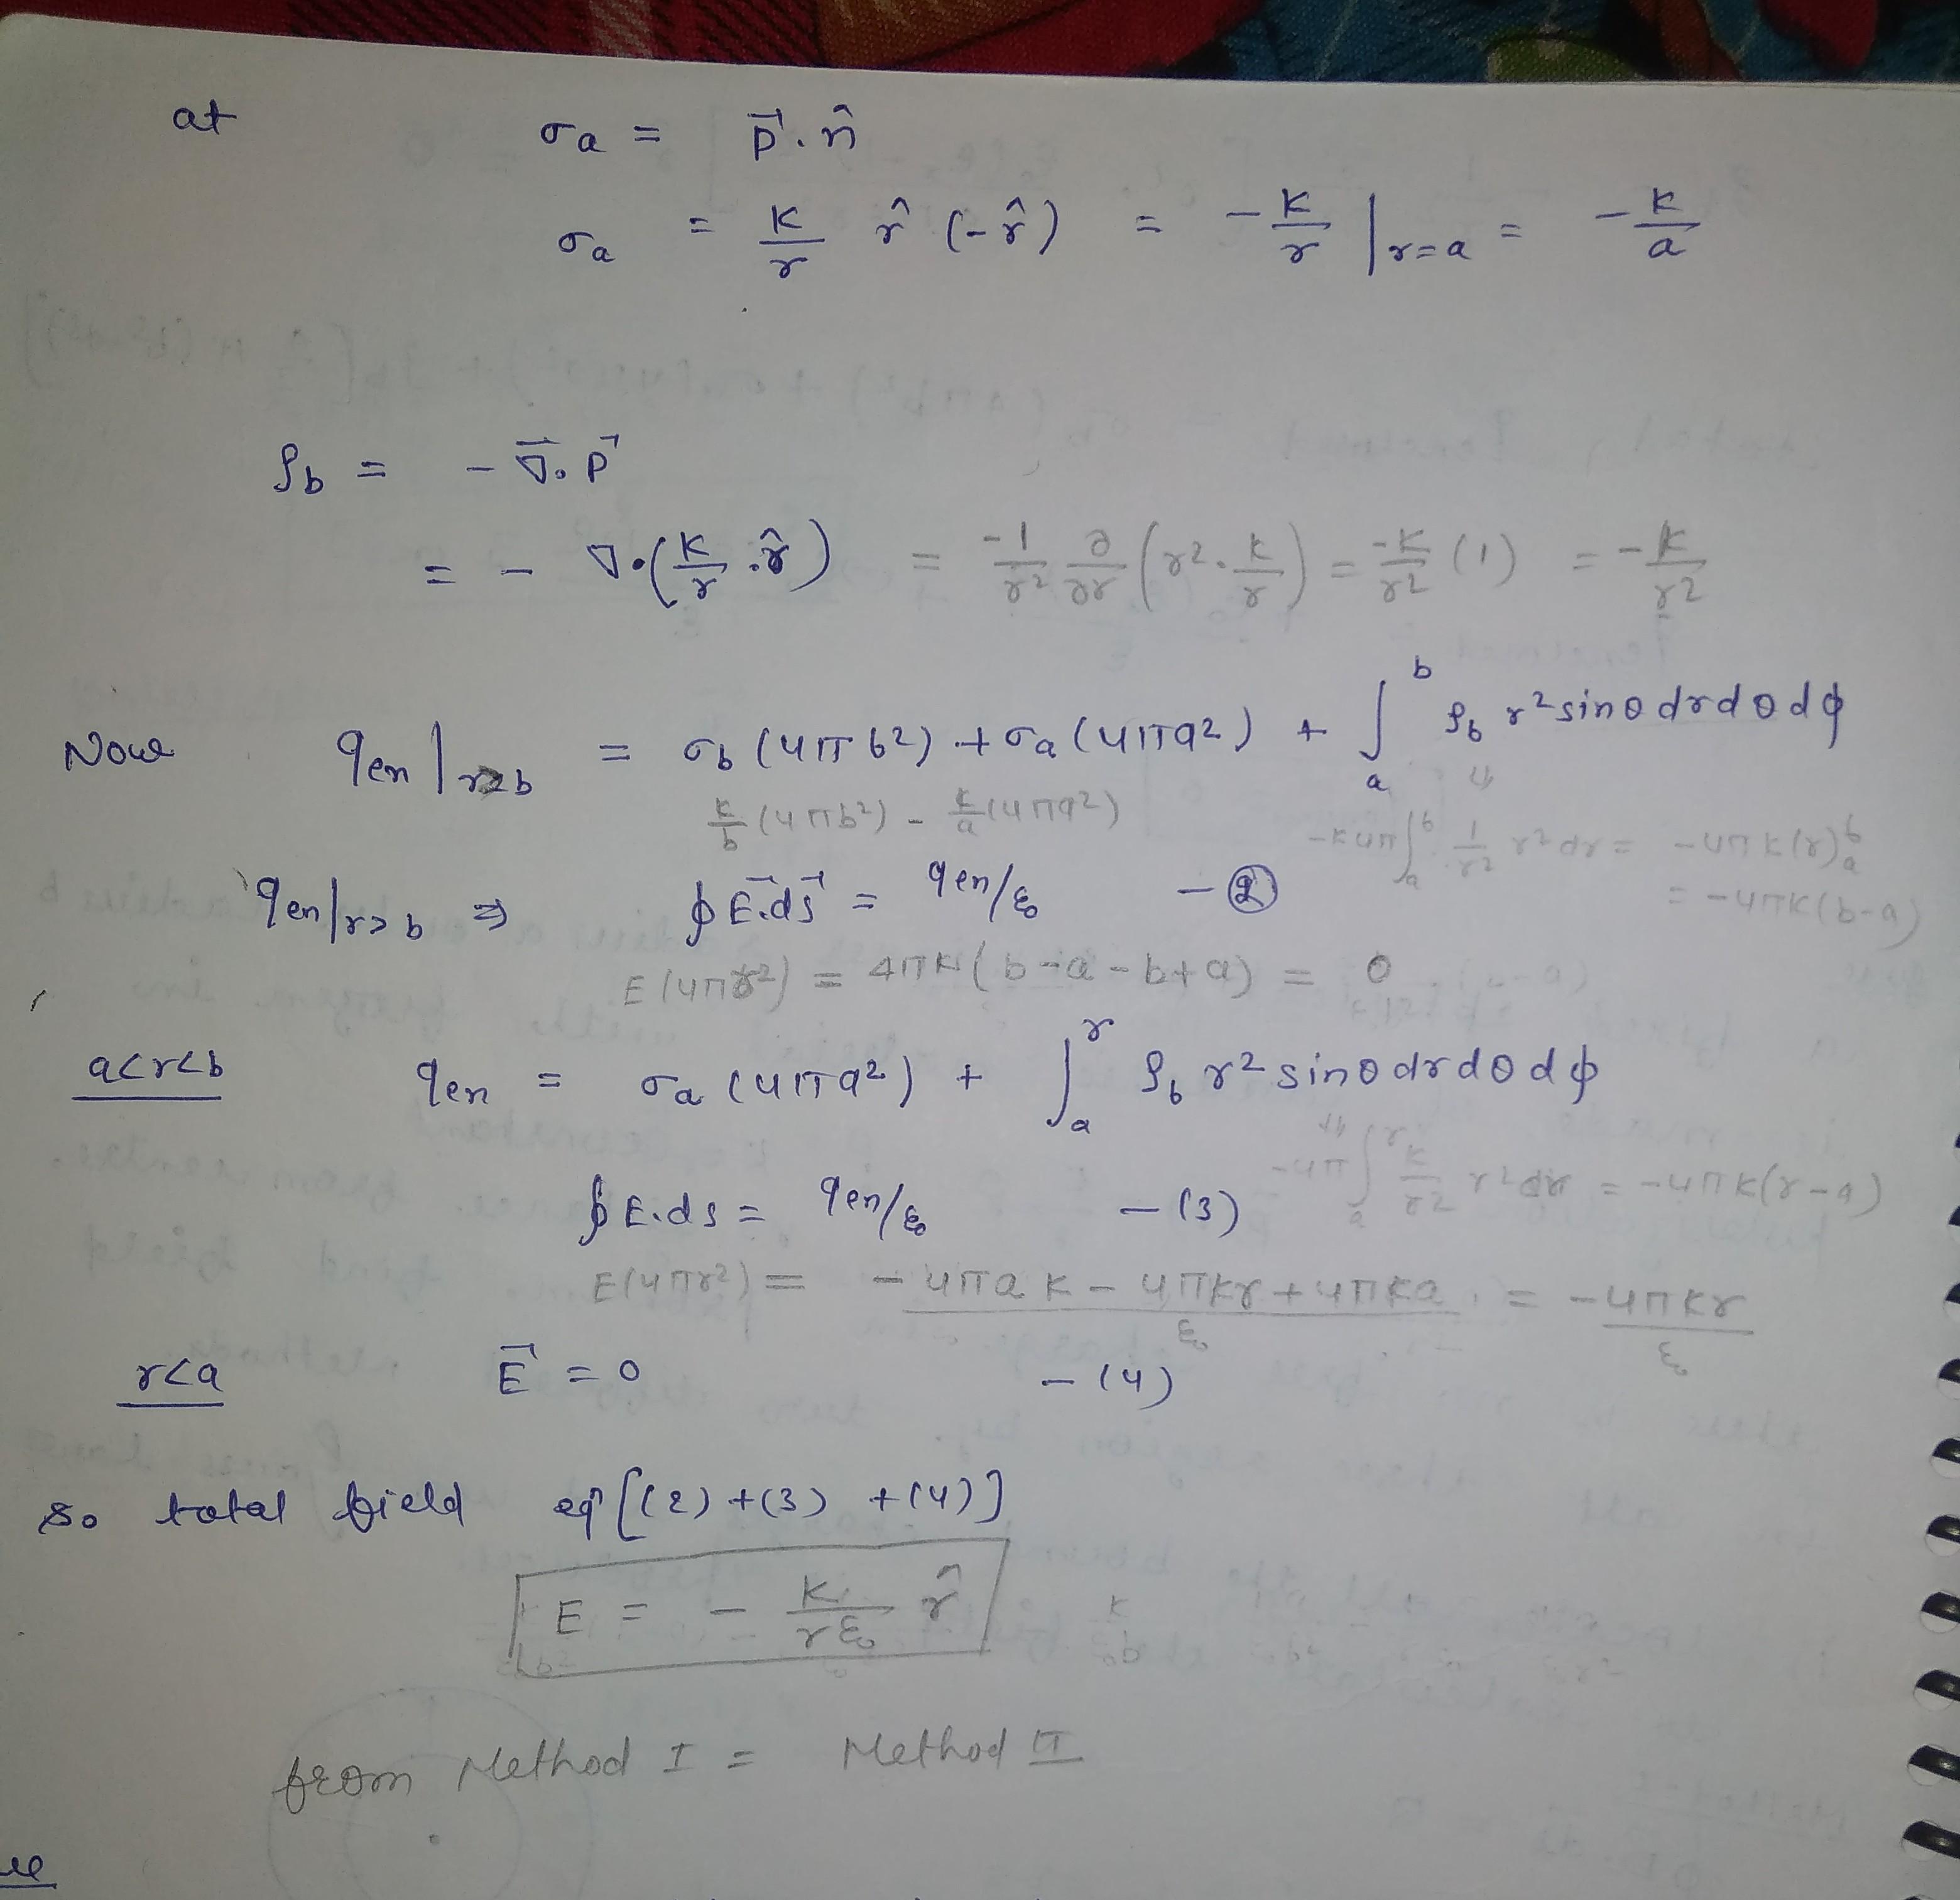 at σa = P⃗ . n̂
σa = K/r r̂ (-r̂) = -K/r |r=a = -K/a
ρb = - ∇⃗. P⃗
= - ∇.(K/r .r̂) = -1/r² ∂/∂r (r². k/r) = -K/r² (1) = -K/r²
Now qen|r>b = σb (4πb²) + σa (4πa²) + ∫ₐᵇ ρb r² sinθ dr dθ dφ
K/b (4πb²) - K/a (4πa²) -K4π ∫ₐᵇ 1/r² r² dr = -4πK(r)ₐᵇ
= -4πK(b-a)
qen|r>b ⇒ ∮ E⃗.ds⃗ = qen/ε₀ - ②
E(4πr²) = 4πK(b-a-b+a) = 0
a<r<b qen = σa (4πa²) + ∫ₐʳ ρb r² sinθ dr dθ dφ
-4π ∫ₐʳ K/r² r² dr = -4πK(r-a)
∮ E.ds = qen/ε₀ - (3)
E(4πr²) = (-4πaK - 4πKr + 4πKa)/ε₀ = -4πKr/ε₀
r<a E⃗ = 0 - (4)
So total field eqⁿ [(2) + (3) + (4)]
E = - K/rε₀ r̂
from Method I = Method II